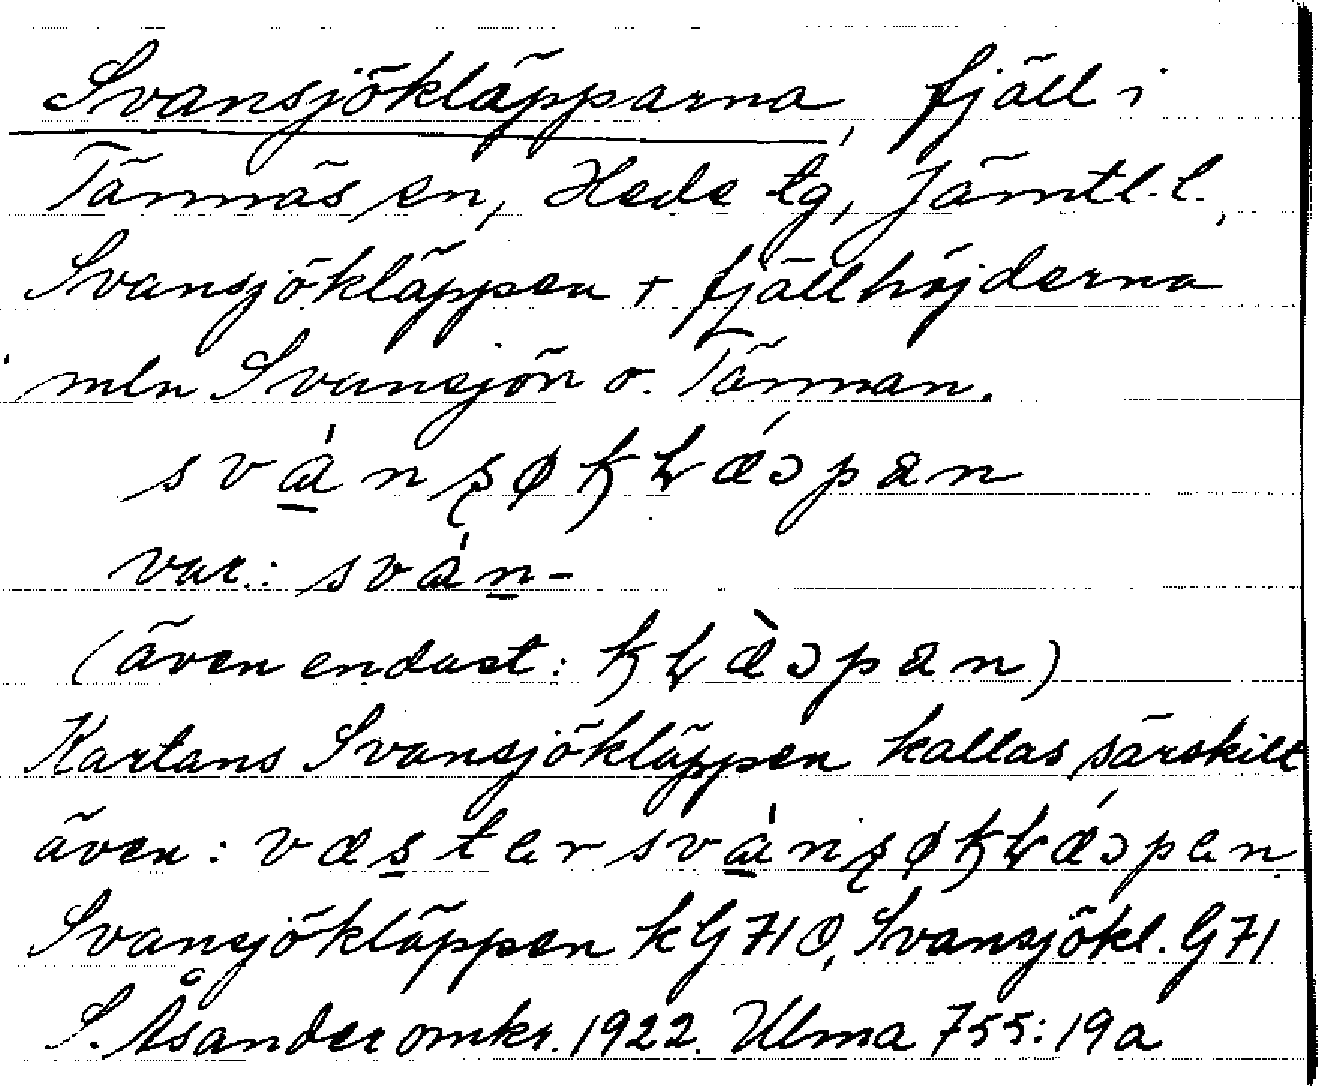 Svansjökläpparna, fjäll i
Tännäs sn, Hede tg, Jämtl. l.,
Svansjökläppen + fjällhöjderna
mln Svansjön o. Tännan.
var.: svàn-
(även endast:
Kartans Svansjökläppen kallas särskilt
även:
Svansjökläppen k G 71 O, Svansjökl. G 71
S. Åsander omkr. 1922. Ulma 755:19a